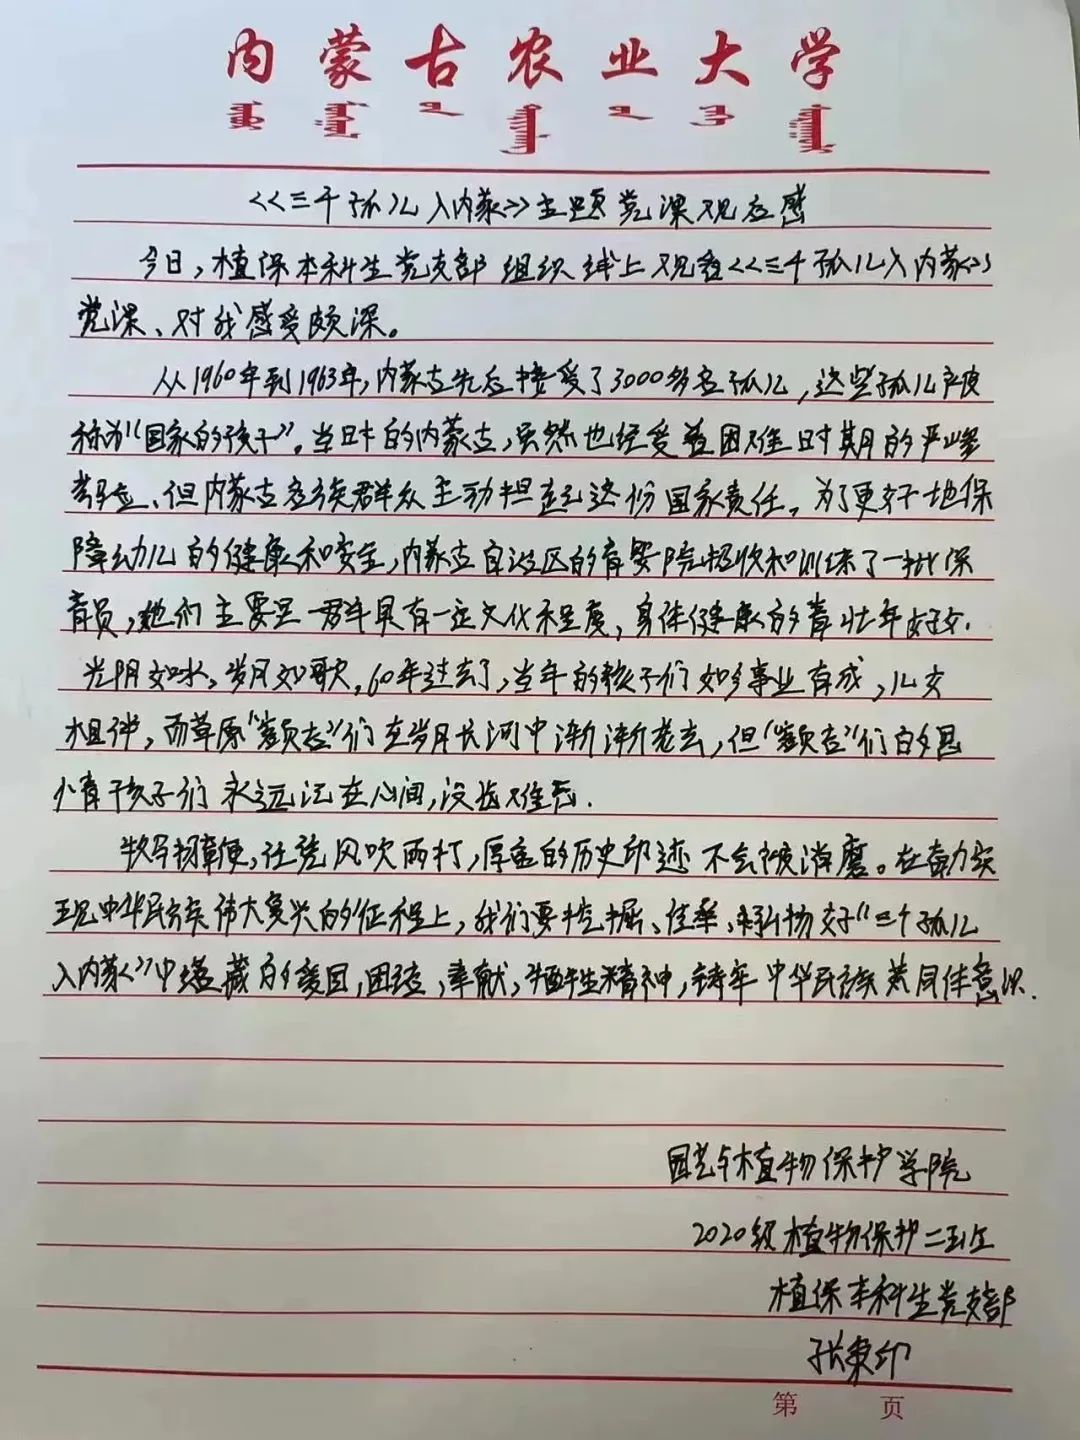 内蒙古农业大学
<<三千孤儿入内蒙>>主题党课观后感
今日，植保本科生党支部组织线上观看<<三千孤儿入内蒙>>
党课、对我感受颇深。
从1960年到1963年，内蒙古先后接受了3000多名孤儿，这些孤儿应被
称为“国家的孩子”。当时的内蒙古，虽然也经受着困难时期的严峻
考验、但内蒙古各族群众主动担起这份国家责任。为了更好地保
障幼儿的健康和安全，内蒙古自治区的育婴院招收和训练了一批保
育员，她们主要是一群具有一定文化程度，身体健康的青壮年妇女.
光阴如水，岁月如歌，60年过去了，当年的孩子们如今事业有成，儿女
相伴，而草原“额吉”们在岁月长河中渐渐老去，但“额吉”们的恩
情孩子们永远记在心间，没齿难忘.
任凭风吹雨打，厚重的历史印迹不会被消磨。在奋力实
现中华民族伟大复兴的征程上，我们要挖掘、传承、弘扬好“三千孤儿
入内蒙”中蕴藏的爱国，团结，奉献，牺牲精神，铸牢中华民族共同体意识.
园艺与植物保护学院
2020级植物保护二班
植保本科生党支部
张秉印
第 页